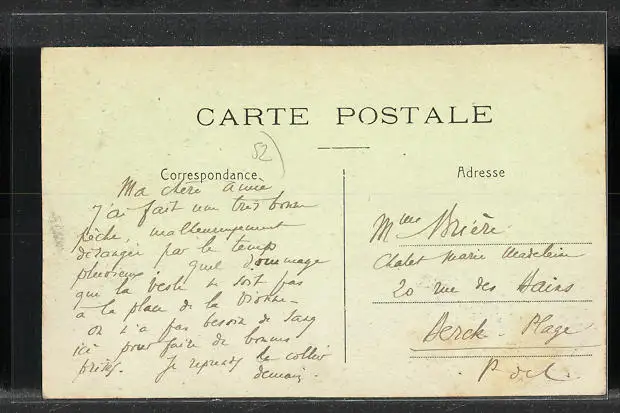 CARTE POSTALE
52
Correspondance
Adresse
Ma chère amie
J'ai fait une très bonne
pêche, malheureusement
dérangée par le temps
pluvieux. quel dommage
que la Vesle ne soit pas
à la place de la
on n'a pas besoin de sang
ici pour faire de bonnes
prises. Je reprends le collier
demain.
Mme Brière
Chalet Marie Madeleine
20 rue des Bains
Berck-Plage
P de C.